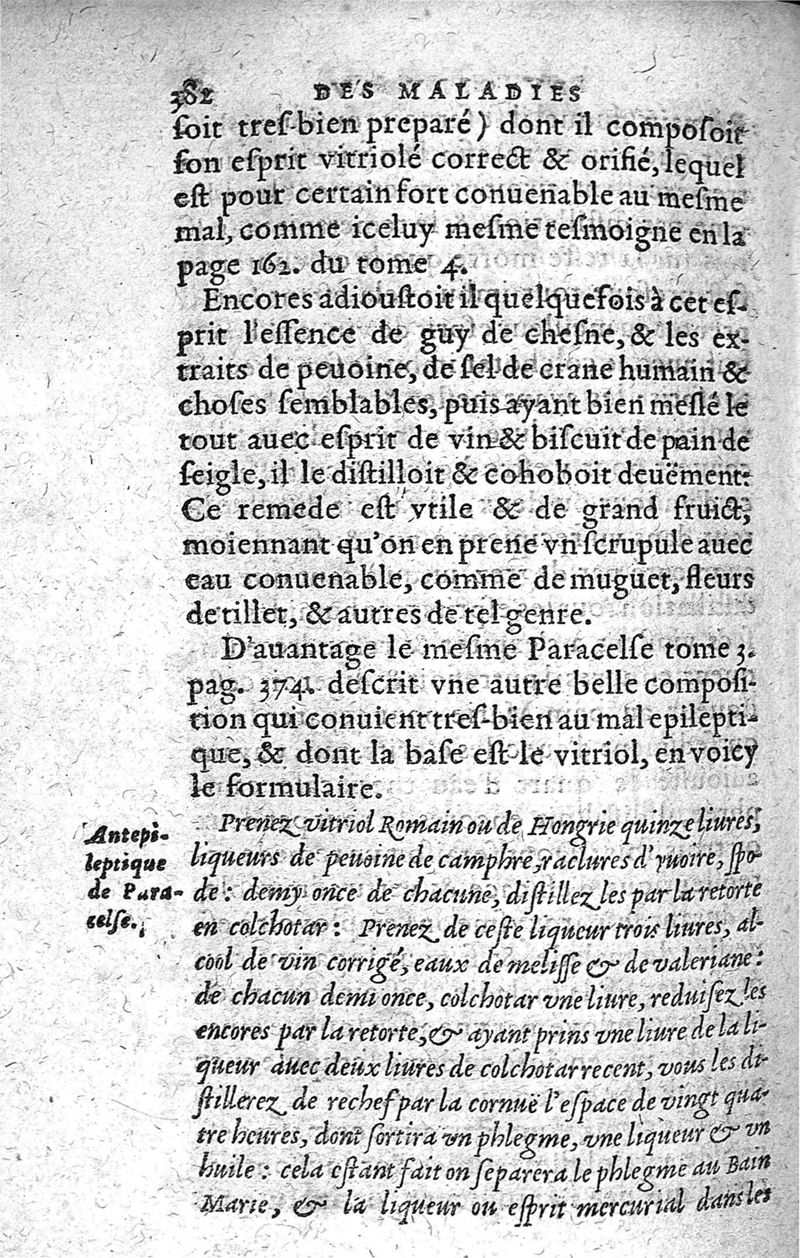 382 DES MALADIES
ſoit treſ-bien preparé) dont il compoſoit
ſon eſprit vitriolé correct & orifié, lequel
eſt pour certain fort conuenable au meſme
mal, comme iceluy meſme teſmoigne en la
page 162. du tome 4.
Encores adiouſtoit il quelquefois à cet eſ-
prit l'eſſence de guy de cheſne, & les ex-
traits de peuoine, de ſel de crane humain &
choſes ſemblables, puis ayant bien meſlé le
tout auec eſprit de vin & biſcuit de pain de
ſeigle, il le diſtilloit & cohoboit deuëment:
Ce remede eſt vtile & de grand fruict,
moiennant qu'on en prene vn ſcrupule auec
eau conuenable, comme de muguet, fleurs
de tillet, & autres de tel genre.
D'auantage le meſme Paracelſe tome 3.
pag. 374. deſcrit vne autre belle compoſi-
tion qui conuient treſ-bien au mal epilepti-
que, & dont la baſe eſt le vitriol, en voicy
le formulaire.
Antepi-
leptique
de Para-
celſe.
Prenez vitriol Romain ou de Hongrie quinze liures,
liqueurs de peuoine de camphre, raclures d'yuoire, ſpo-
de: demy once de chacune, diſtillez les par la retorte
en colchotar: Prenez de ceſte liqueur trois liures, al-
cool de vin corrigé, eaux de meliſſe & de valeriane:
de chacun demi once, colchotar vne liure, reduiſez les
encores par la retorte, & ayant prins vne liure de la li-
queur auec deux liures de colchotar recent, vous les di-
ſtillerez de rechef par la cornuë l'eſpace de vingt qua-
tre heures, dont ſortira vn phlegme, vne liqueur & vn
huile: cela eſtant fait on ſeparera le phlegme au Bain
Marie, & la liqueur ou eſprit mercurial dans les